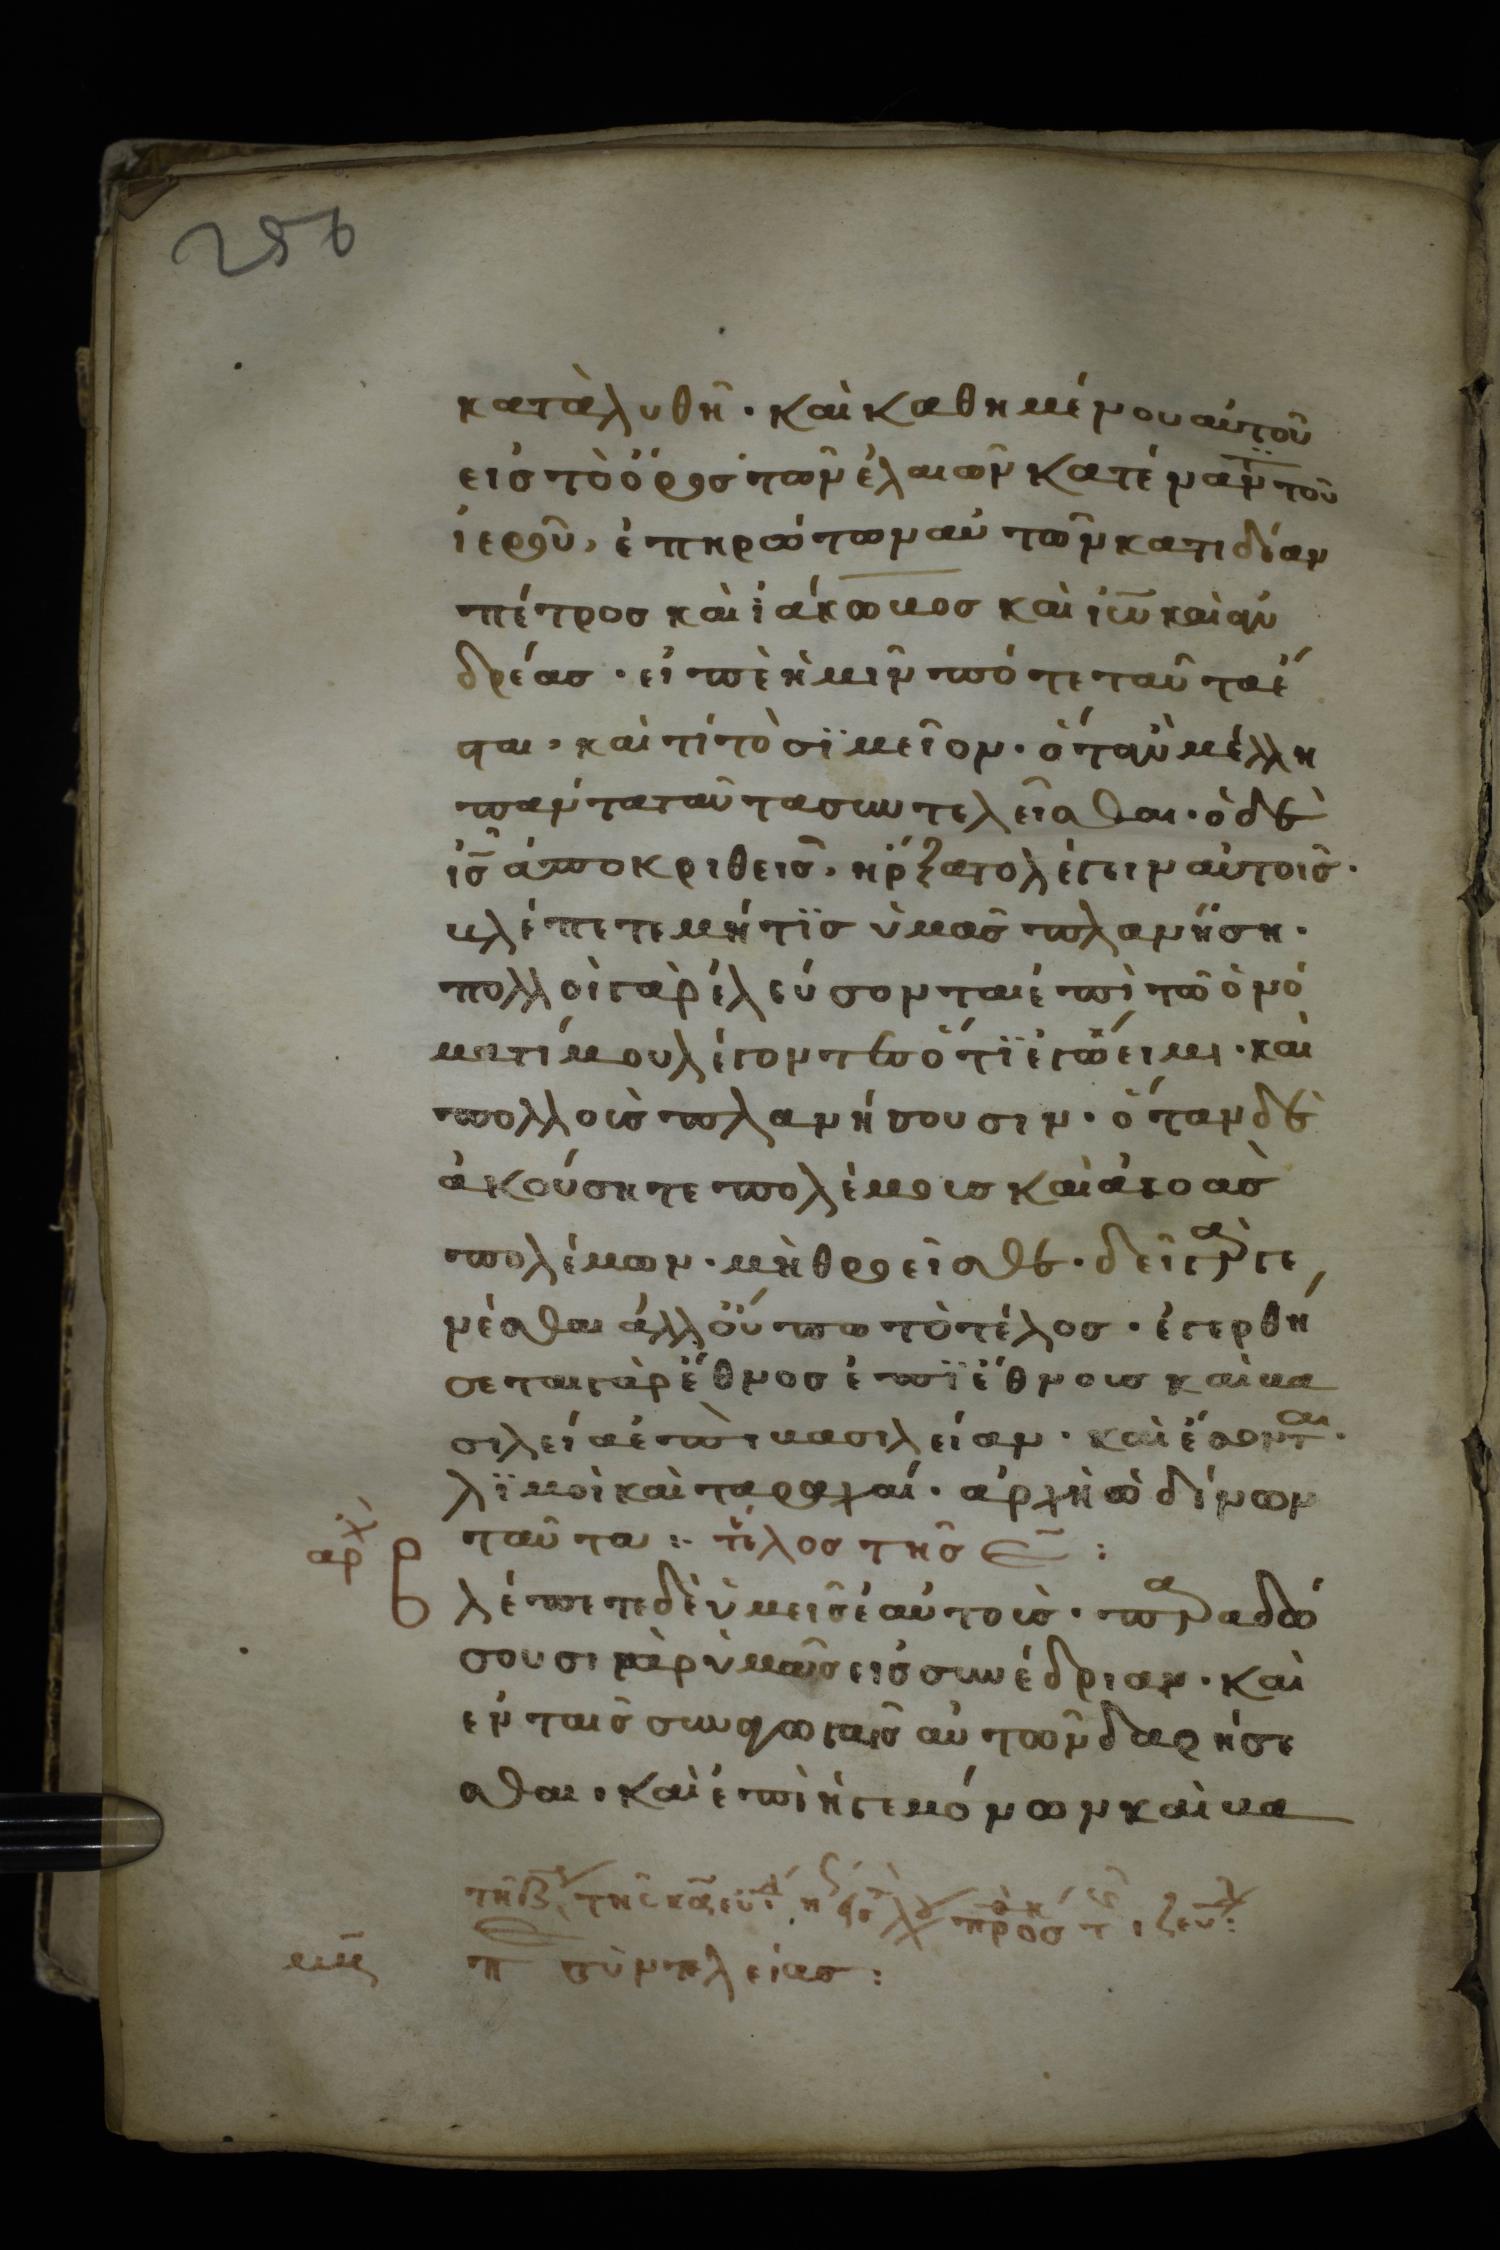 256
καταλυθῆ · καὶ καθημένου αὐτοῦ
εἰς τὸ ὄρος τῶν ἐλαιῶν κατέναντϊ τοῦ
ἱεροῦ, ἐπηρώτων αὐτῶν κατιδίαν
πέτρος καὶ ἰάκωβος καὶ ἰω̅ καὶ ἀν
δρέας · εἰπὲ ἡμῖν πότε ταῦτα ἔ
ται, καὶ τί τὸ σϊμεῖον · ὅταν μέλλη
πάντα ταῦτα συντελεῖσθαι · ὁ δὲ
ι̅ς̅ ἀποκριθεὶς, ἤρξατο λέγειν αὐτοῖς ·
βλέπετε μή τϊς ὑμᾶς πλανήση ·
πολλοὶ γὰρ ἐλεύσονται ἐπὶ τῶ ὀνό
ματί μου λέγοντες ὅτϊ ἐγώ εἰμι · καὶ
πολλοὺς πλανήσουσιν · ὅταν δὲ
ἀκούσητε πολέμοις καὶ ἀκοὰς
πολέμων · μὴ θροεῖσθε · δεῖ γὰρ γε
νέσθαι ἀλλ οὔπω τὸ τέλος · ἐγερθή
σεται γὰρ ἔθνος ἐπϊ ἔθνοις καὶ βα
σιλεία ἐπὶ βασιλείαν · καὶ ἔσονται ·
λϊμοὶ καὶ ταραχαί · ἀρχὴ ὠδίνων
ταῦτα :· τέλος τῆς ε̅ :
ἀρχ
βλέπετε δὲ ὑμεῖς ἑαυτοὺς · παραδώ
σουσι γὰρ ὑμᾶς εἰς συνέδριαν · καὶ
ἐν ταῖς συναγωγαῖς αὐτῶν δαρήσε
σθαι · καὶ ἐπὶ ἡγεμόνων καὶ βα